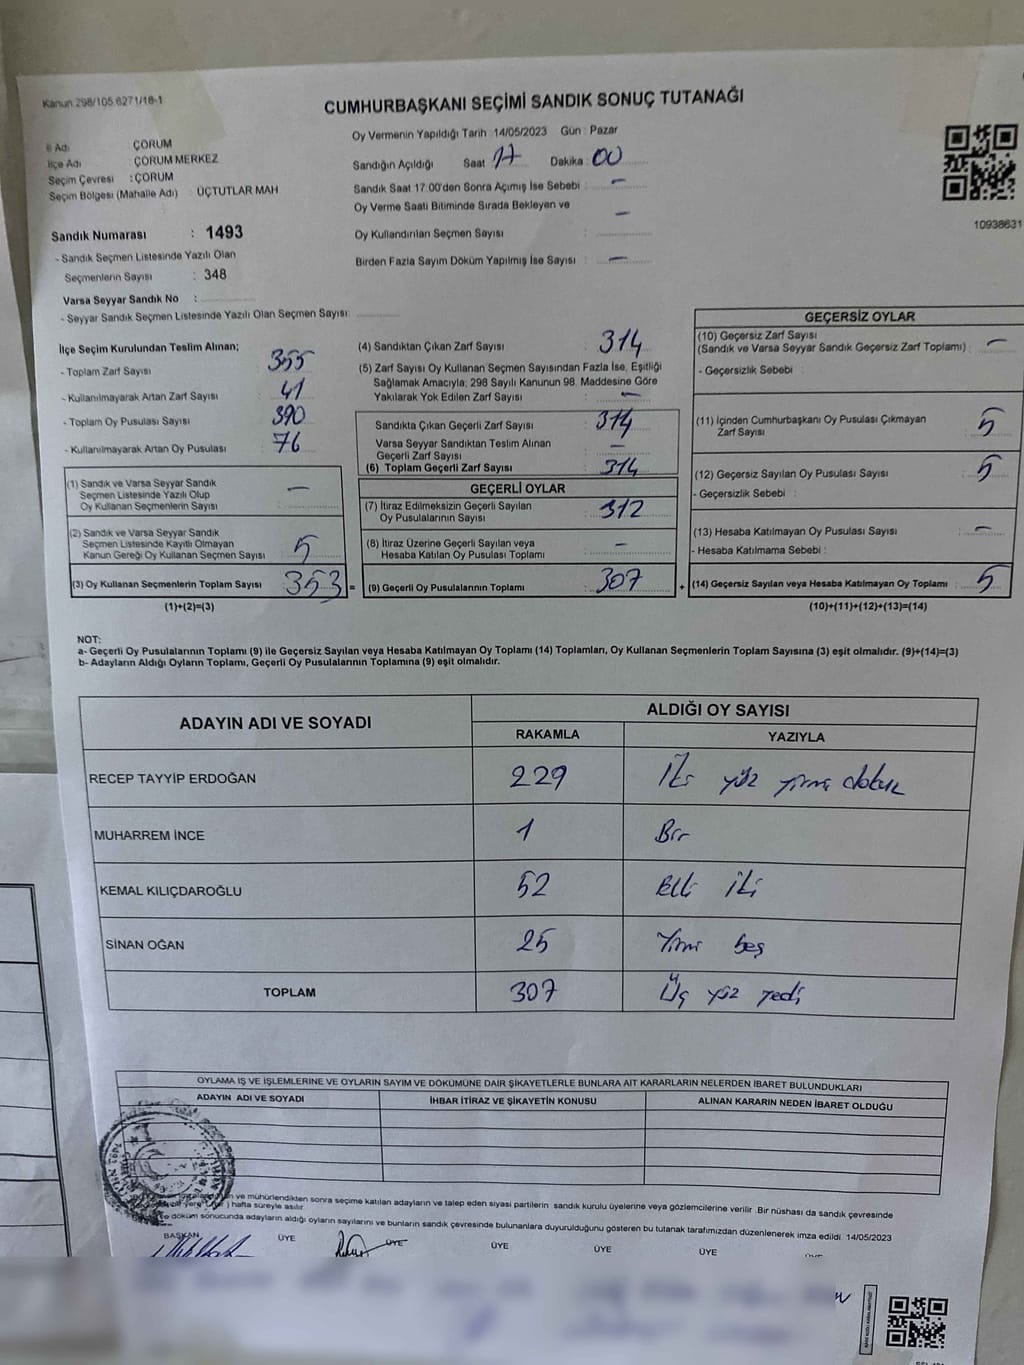 Kanun 298/105.6271/18-1
CUMHURBAŞKANI SEÇİMİ SANDIK SONUÇ TUTANAĞI
İl Adı : ÇORUM
İlçe Adı : ÇORUM MERKEZ
Seçim Çevresi : ÇORUM
Seçim Bölgesi (Mahalle Adı) : ÜÇTUTLAR MAH
Sandık Numarası : 1493
- Sandık Seçmen Listesinde Yazılı Olan
Seçmenlerin Sayısı : 348
Varsa Seyyar Sandık No :
- Seyyar Sandık Seçmen Listesinde Yazılı Olan Seçmen Sayısı:
Oy Vermenin Yapıldığı Tarih : 14/05/2023 Gün : Pazar
Sandığın Açıldığı Saat : 17 Dakika : 00
Sandık Saat 17:00'den Sonra Açımış İse Sebebi : -
Oy Verme Saati Bitiminde Sırada Bekleyen ve -
Oy Kullandırılan Seçmen Sayısı :
Birden Fazla Sayım Döküm Yapılmış İse Sayısı : -
10938631
İlçe Seçim Kurulundan Teslim Alınan;
- Toplam Zarf Sayısı : 355
- Kullanılmayarak Artan Zarf Sayısı : 41
- Toplam Oy Pusulası Sayısı : 390
- Kullanılmayarak Artan Oy Pusulası : 76
(1) Sandık ve Varsa Seyyar Sandık
Seçmen Listesinde Yazılı Olup
Oy Kullanan Seçmenlerin Sayısı : -
(2) Sandık ve Varsa Seyyar Sandık
Seçmen Listesinde Kayıtlı Olmayan
Kanun Gereği Oy Kullanan Seçmen Sayısı : 5
(3) Oy Kullanan Seçmenlerin Toplam Sayısı : 353 =
(1)+(2)=(3)
(4) Sandıktan Çıkan Zarf Sayısı : 314
(5) Zarf Sayısı Oy Kullanan Seçmen Sayısından Fazla İse, Eşitliği
Sağlamak Amacıyla, 298 Sayılı Kanunun 98. Maddesine Göre
Yakılarak Yok Edilen Zarf Sayısı : -
Sandıkta Çıkan Geçerli Zarf Sayısı : 314
Varsa Seyyar Sandıktan Teslim Alınan
Geçerli Zarf Sayısı : -
(6) Toplam Geçerli Zarf Sayısı : 314
GEÇERLİ OYLAR
(7) İtiraz Edilmeksizin Geçerli Sayılan
Oy Pusulalarının Sayısı : 312
(8) İtiraz Üzerine Geçerli Sayılan veya
Hesaba Katılan Oy Pusulası Toplamı : -
(9) Geçerli Oy Pusulalarının Toplamı : 307 +
GEÇERSİZ OYLAR
(10) Geçersiz Zarf Sayısı
(Sandık ve Varsa Seyyar Sandık Geçersiz Zarf Toplamı) : -
- Geçersizlik Sebebi :
(11) İçinden Cumhurbaşkanı Oy Pusulası Çıkmayan
Zarf Sayısı : 5
(12) Geçersiz Sayılan Oy Pusulası Sayısı : 5
- Geçersizlik Sebebi :
(13) Hesaba Katılmayan Oy Pusulası Sayısı : -
- Hesaba Katılmama Sebebi :
(14) Geçersiz Sayılan veya Hesaba Katılmayan Oy Toplamı : 5
(10)+(11)+(12)+(13)=(14)
NOT:
a- Geçerli Oy Pusulalarının Toplamı (9) ile Geçersiz Sayılan veya Hesaba Katılmayan Oy Toplamı (14) Toplamları, Oy Kullanan Seçmenlerin Toplam Sayısına (3) eşit olmalıdır. (9)+(14)=(3)
b- Adayların Aldığı Oyların Toplamı, Geçerli Oy Pusulalarının Toplamına (9) eşit olmalıdır.
ADAYIN ADI VE SOYADI
ALDIĞI OY SAYISI
RAKAMLA YAZIYLA
RECEP TAYYİP ERDOĞAN 229 İki yüz yirmi dokuz
MUHARREM İNCE 1 Bir
KEMAL KILIÇDAROĞLU 52 Elli iki
SİNAN OĞAN 25 Yirmi beş
TOPLAM 307 Üç yüz yedi
OYLAMA İŞ VE İŞLEMLERİNE VE OYLARIN SAYIM VE DÖKÜMÜNE DAİR ŞİKAYETLERLE BUNLARA AİT KARARLARIN NELERDEN İBARET BULUNDUKLARI
ADAYIN ADI VE SOYADI İHBAR İTİRAZ VE ŞİKAYETİN KONUSU ALINAN KARARIN NEDEN İBARET OLDUĞU
ve mühürlendikten sonra seçime katılan adayların ve talep eden siyasi partilerin sandık kurulu üyelerine veya gözlemcilerine verilir. Bir nüshası da sandık çevresinde
hafta süreyle asılır.
ve döküm sonucunda adayların aldığı oyların sayılarını ve bunların sandık çevresinde bulunanlara duyurulduğunu gösteren bu tutanak tarafımızdan düzenlenerek imza edildi. 14/05/2023
BAŞKAN ÜYE ÜYE ÜYE ÜYE ÜYE